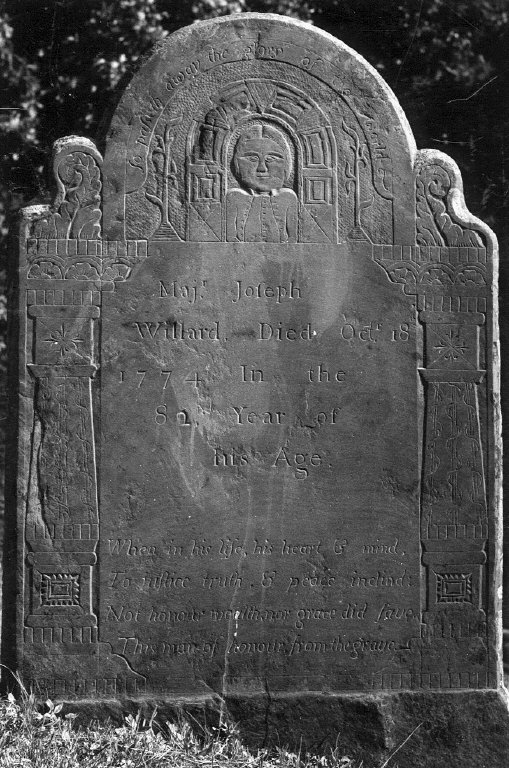 So passeth away the glory of the World
Majr. Joſeph
Willard. Died Octr. 18
1774 In the
82. Year of
his Age.
When in his life, his heart & mind,
To juſtice truth, & peace inclind:
Not honour wealth, nor grace did ſave.
This man of honour, from the grave.